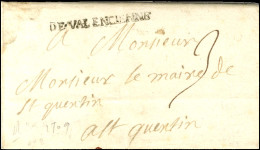 DE VALENCIENNE
A Monsieur
Monsieur le maire de
St quentin
1709
a St quentin